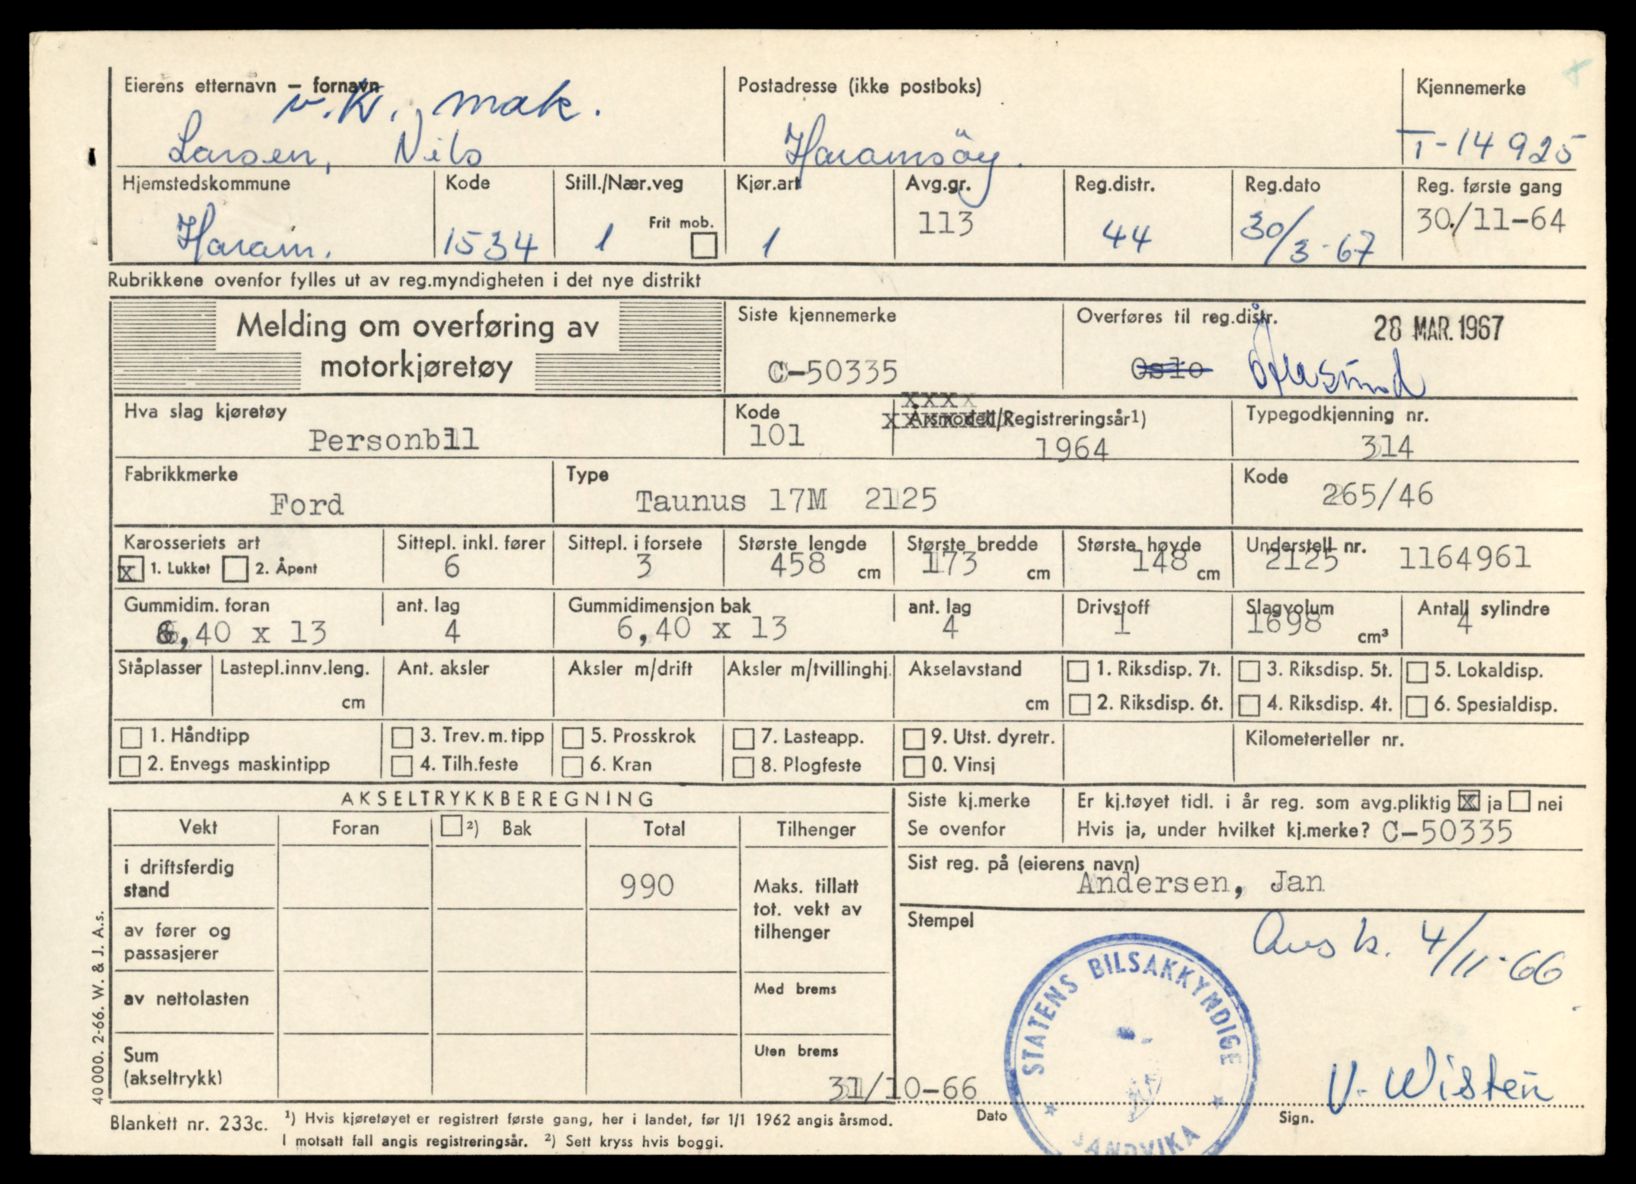 Eierens etternavn – fornavn Postadresse (ikke postboks) Kjennemerke
v. Kr. mak.
Larsen, Nils Haramsöy. T-14925
Hjemstedskommune Kode Still./Nær.veg Kjør.art Avg.gr. Reg.distr. Reg.dato Reg. første gang
Frit mob.
Haram. 1534 1 1 113 44 30/3-67 30/11-64
Rubrikkene ovenfor fylles ut av reg.myndigheten i det nye distrikt
Melding om overføring av motorkjøretøy
Siste kjennemerke Overføres til reg.distr. 28 MAR. 1967
C-50335 Oslo Ålesund
Hva slag kjøretøy Kode Årsmodell/Registreringsår¹) Typegodkjenning nr.
Personbil 101 1964 314
Fabrikkmerke Type Kode
Ford Taunus 17M 2125 265/46
Karosseriets art Sittepl. inkl. fører Sittepl. i forsete Største lengde Største bredde Største høyde Understell nr.
x 1. Lukket 2. Åpent 6 3 458 cm 173 cm 148 cm 2125 1164961
Gummidim. foran ant. lag Gummidimensjon bak ant. lag Drivstoff Slagvolum Antall sylindre
6,40 x 13 4 6,40 x 13 4 1 1698 cm³ 4
Ståplasser Lastepl.innv.leng. Ant. aksler Aksler m/drift Aksler m/tvillinghj. Akselavstand 1. Riksdisp. 7t. 3. Riksdisp. 5t. 5. Lokaldisp.
cm cm 2. Riksdisp. 6t. 4. Riksdisp. 4t. 6. Spesialdisp.
1. Håndtipp 3. Trev.m.tipp 5. Prosskrok 7. Lasteapp. 9. Utst. dyretr. Kilometerteller nr.
2. Envegs maskintipp 4. Tilh.feste 6. Kran 8. Plogfeste 0. Vinsj
AKSELTRYKKBEREGNING Siste kj.merke Er kj.tøyet tidl. i år reg. som avg.pliktig x ja nei
Vekt Foran ²) Bak Total Tilhenger Se ovenfor Hvis ja, under hvilket kj.merke? C-50335
i driftsferdig stand 990 Maks. tillatt tot. vekt av tilhenger
Sist reg. på (eierens navn)
Andersen, Jan
av fører og passasjerer
Stempel
Avsk. 4/11-66
av nettolasten Med brems
STATENS BILSAKKYNDIGE * SANDVIKA *
Sum (akseltrykk) Uten brems
V. Wisten
31/10-66
Dato Sign.
Blankett nr. 233c. ¹) Hvis kjøretøyet er registrert første gang, her i landet, før 1/1 1962 angis årsmod.
I motsatt fall angis registreringsår. ²) Sett kryss hvis boggi.
40 000. 2-66. W. & J. A.s.